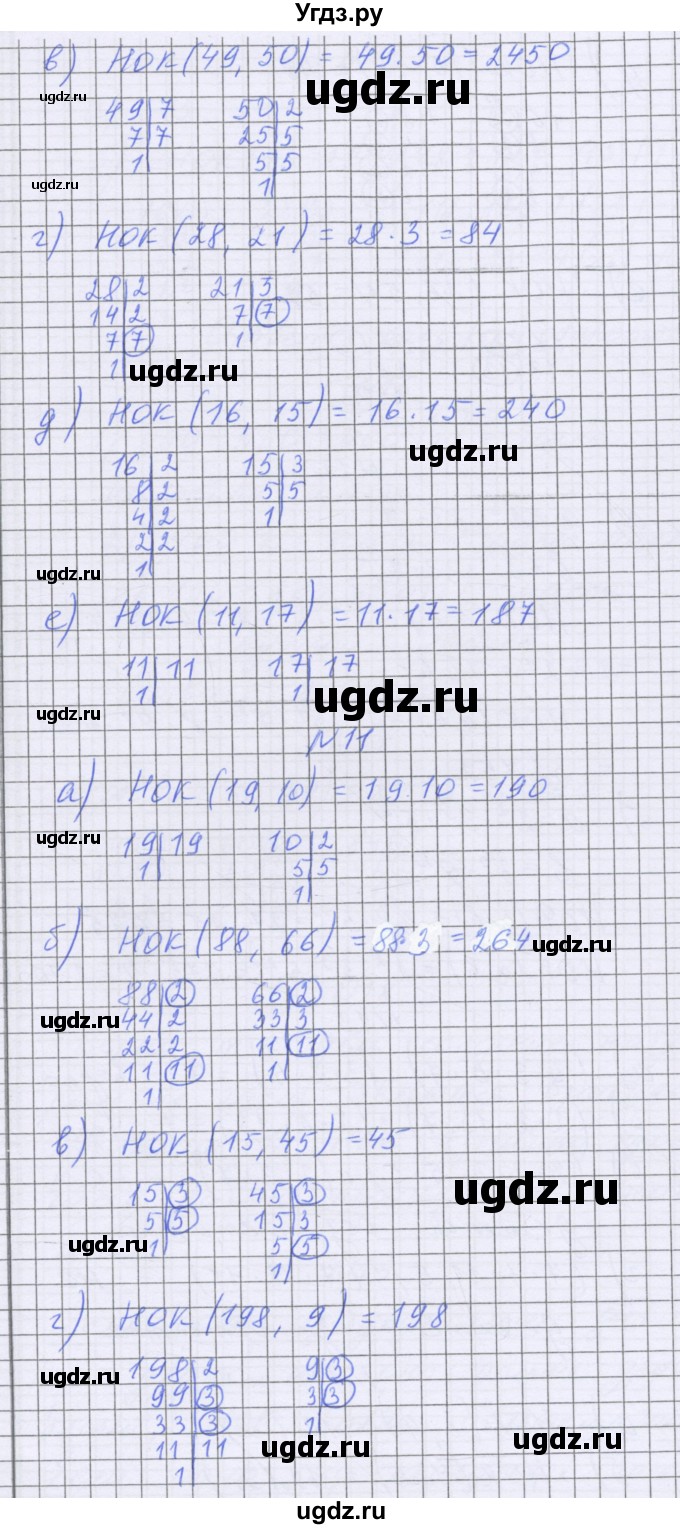 Угдз.ру
в) НОК (49, 50) = 49·50 = 2450
ugdz.ru
ugdz.ru
49|7 50|2
7|7 25|5
1| 5|5
ugdz.ru
1|
г) НОК (28, 21) = 28·3 = 84
28|2 21|3
14|2 7|7
7|7 1|
1|
ugdz.ru
д) НОК (16, 15) = 16·15 = 240
ugdz.ru
16|2 15|3
8|2 5|5
4|2 1|
2|2
1|
ugdz.ru
е) НОК (11, 17) = 11·17 = 187
11|11 17|17
1| 1|
ugdz.ru
ugdz.ru
№11
а) НОК (19, 10) = 19·10 = 190
ugdz.ru
19|19 10|2
1| 5|5
1|
б) НОК (88, 66) = 88·3 = 264
ugdz.ru
88|2 66|2
44|2 33|3
ugdz.ru
22|2 11|11
11|11 1|
1|
в) НОК (15, 45) = 45
15|3 45|3
ugdz.ru
5|5 15|3
1| 5|5
ugdz.ru
1|
г) НОК (198, 9) = 198
198|2 9|3
ugdz.ru
99|3 3|3
33|3 1|
11|11
ugdz.ru
ugdz.ru
1|
ugdz.ru